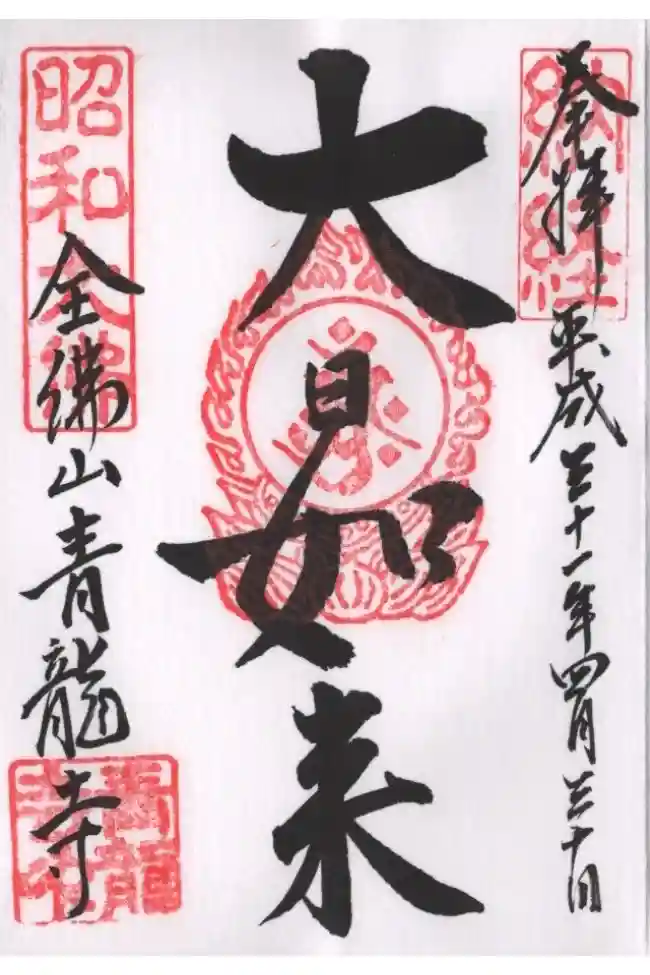 納経
奉拝 平成三十一年四月三十日
大日如来
昭和大佛
全佛山青龍寺